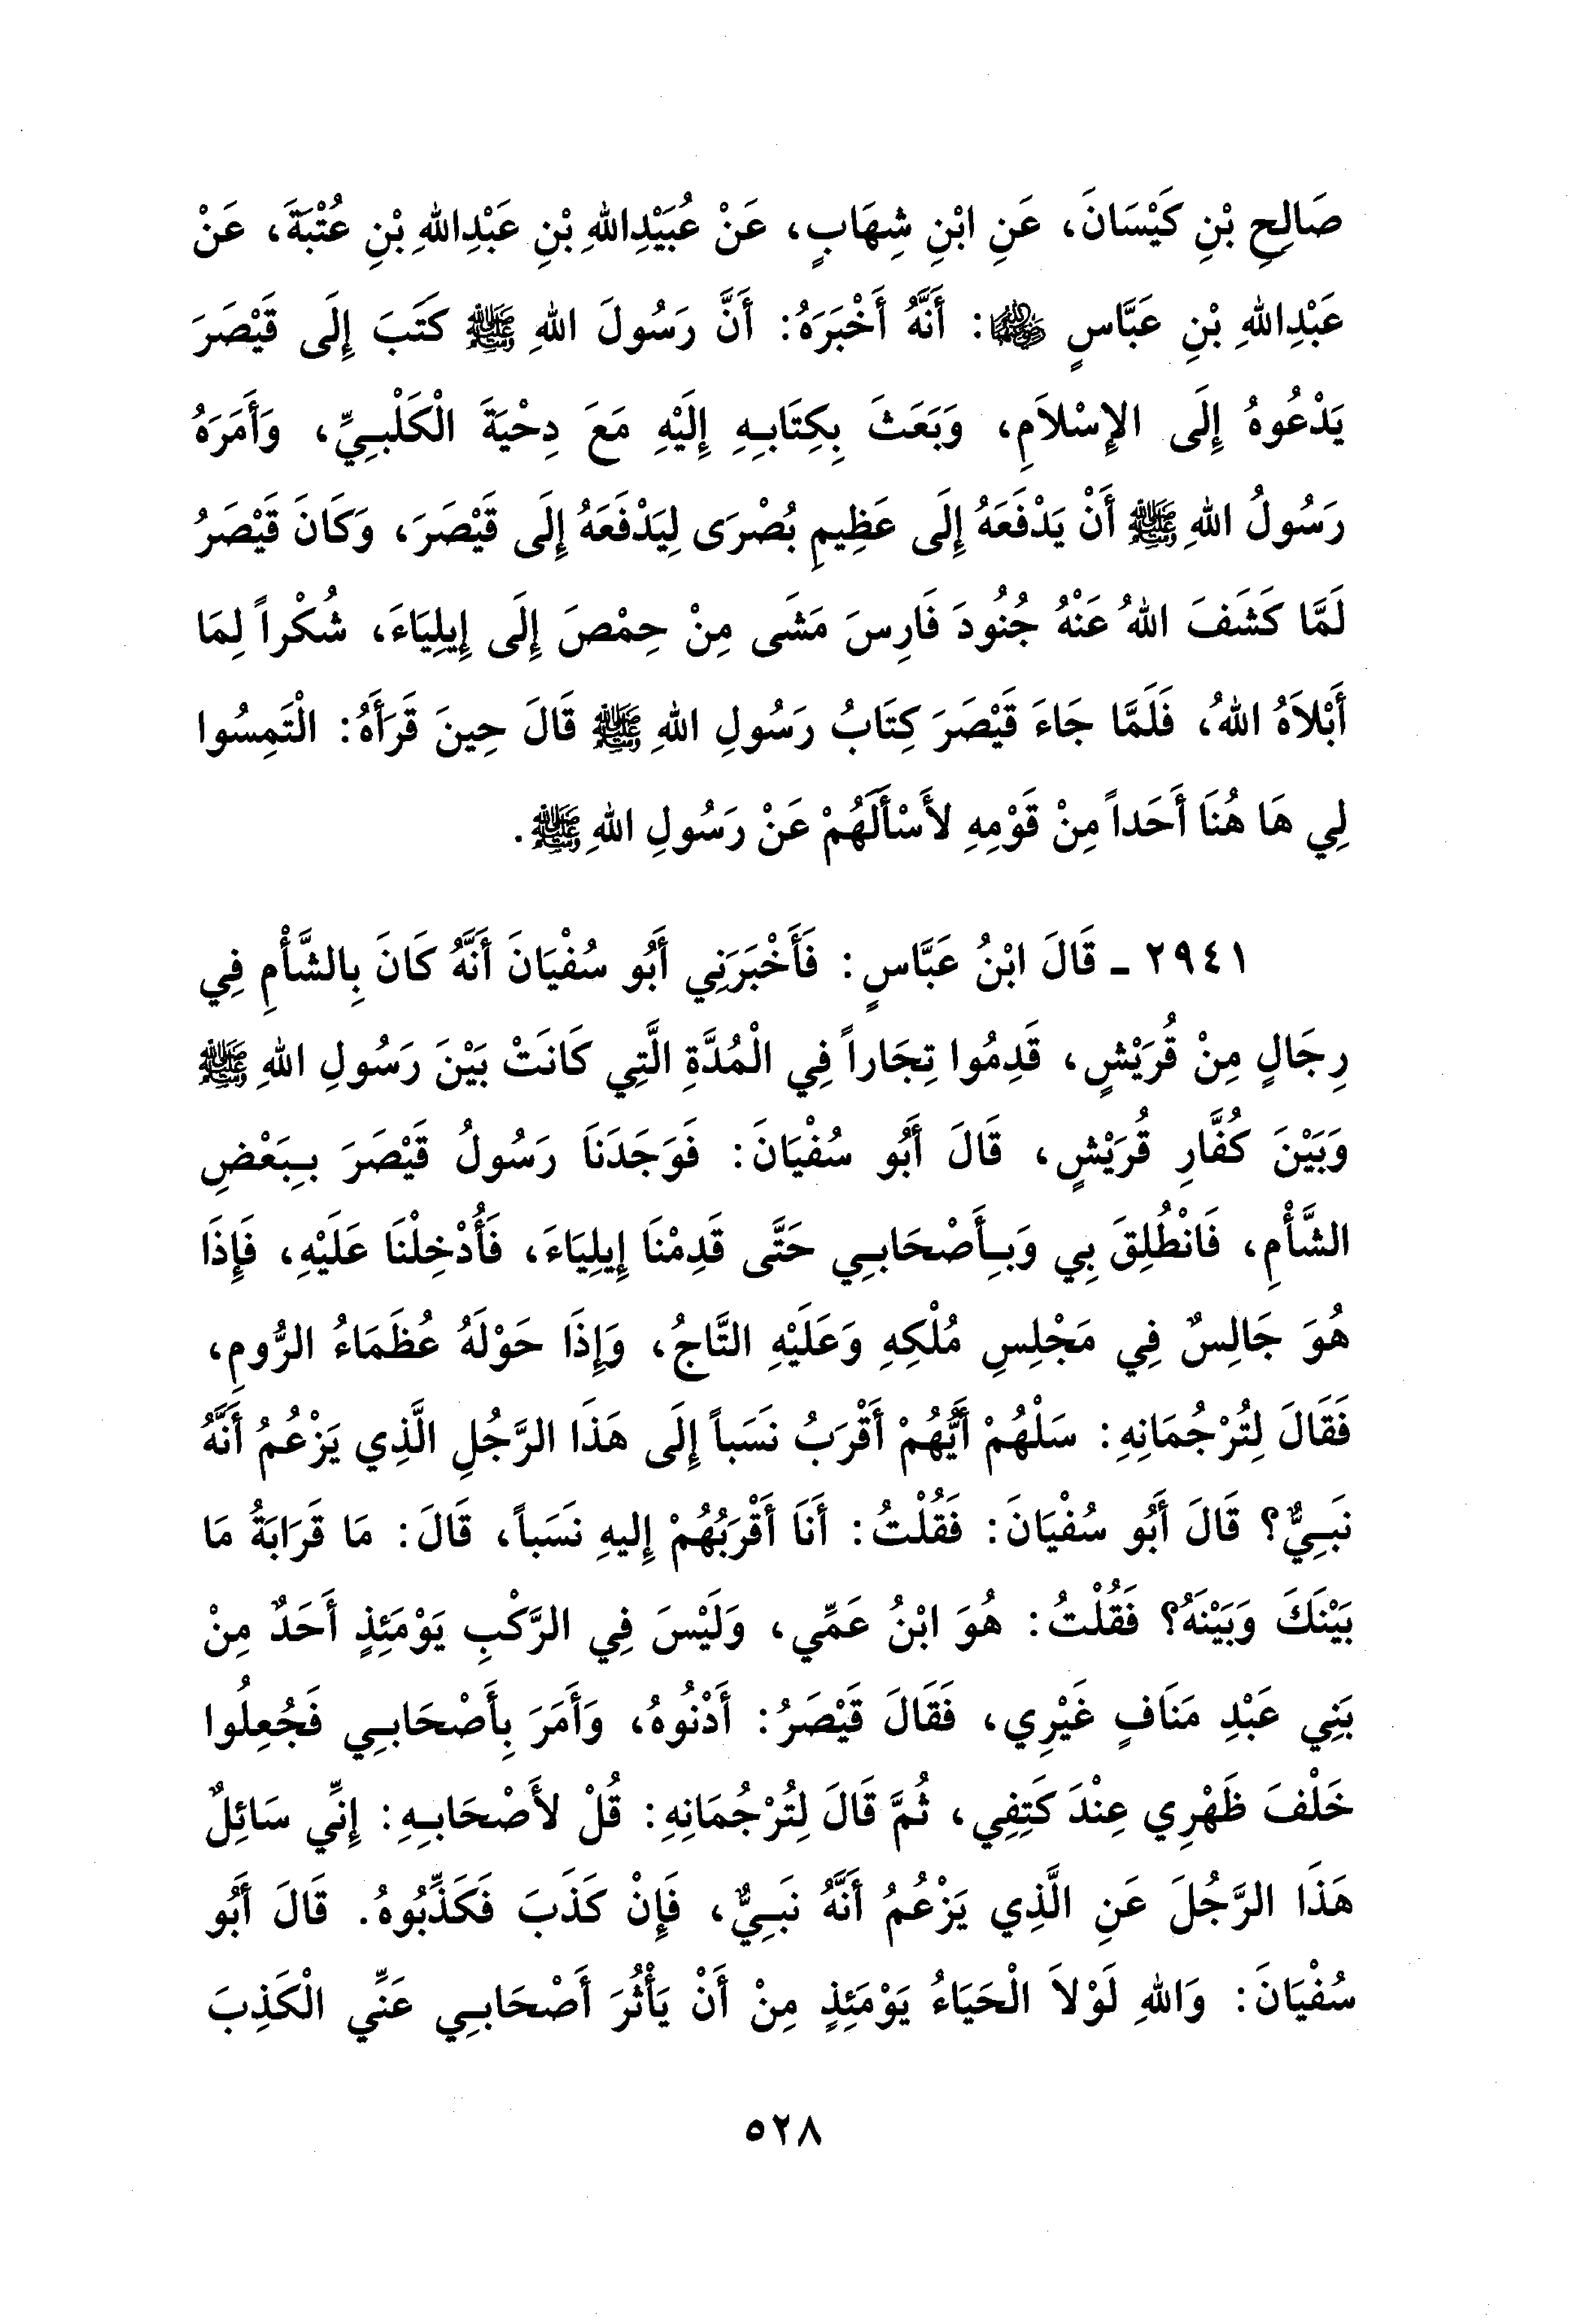 صَالِحِ بْنِ كَيْسَانَ، عَنِ ابْنِ شِهَابٍ، عَنْ عُبَيْدِاللهِ بْنِ عَبْدِاللهِ بْنِ عُتْبَةَ، عَنْ
عَبْدِاللهِ بْنِ عَبَّاسٍ ﵄: أَنَّهُ أَخْبَرَهُ: أَنَّ رَسُولَ اللهِ ﷺ كَتَبَ إِلَى قَيْصَرَ
يَدْعُوهُ إِلَى الإِسْلاَمِ، وَبَعَثَ بِكِتَابِهِ إِلَيْهِ مَعَ دِحْيَةَ الْكَلْبِيِّ، وَأَمَرَهُ
رَسُولُ اللهِ ﷺ أَنْ يَدْفَعَهُ إِلَى عَظِيمِ بُصْرَى لِيَدْفَعَهُ إِلَى قَيْصَرَ، وَكَانَ قَيْصَرُ
لَمَّا كَشَفَ اللهُ عَنْهُ جُنُودَ فَارِسَ مَشَى مِنْ حِمْصَ إِلَى إِيلِيَاءَ، شُكْراً لِمَا
أَبْلاَهُ اللهُ، فَلَمَّا جَاءَ قَيْصَرَ كِتَابُ رَسُولِ اللهِ ﷺ قَالَ حِينَ قَرَأَهُ: الْتَمِسُوا
لِي هَا هُنَا أَحَداً مِنْ قَوْمِهِ لأَسْأَلَهُمْ عَنْ رَسُولِ اللهِ ﷺ.
٢٩٤١ ـ قَالَ ابْنُ عَبَّاسٍ: فَأَخْبَرَنِي أَبُو سُفْيَانَ أَنَّهُ كَانَ بِالشَّأْمِ فِي
رِجَالٍ مِنْ قُرَيْشٍ، قَدِمُوا تِجَاراً فِي الْمُدَّةِ الَّتِي كَانَتْ بَيْنَ رَسُولِ اللهِ ﷺ
وَبَيْنَ كُفَّارِ قُرَيْشٍ، قَالَ أَبُو سُفْيَانَ: فَوَجَدَنَا رَسُولُ قَيْصَرَ بِبَعْضِ
الشَّأْمِ، فَانْطُلِقَ بِي وَبِأَصْحَابِي حَتَّى قَدِمْنَا إِيلِيَاءَ، فَأُدْخِلْنَا عَلَيْهِ، فَإِذَا
هُوَ جَالِسٌ فِي مَجْلِسِ مُلْكِهِ وَعَلَيْهِ التَّاجُ، وَإِذَا حَوْلَهُ عُظَمَاءُ الرُّومِ،
فَقَالَ لِتُرْجُمَانِهِ: سَلْهُمْ أَيُّهُمْ أَقْرَبُ نَسَباً إِلَى هَذَا الرَّجُلِ الَّذِي يَزْعُمُ أَنَّهُ
نَبِيٌّ؟ قَالَ أَبُو سُفْيَانَ: فَقُلْتُ: أَنَا أَقْرَبُهُمْ إِليهِ نَسَباً، قَالَ: مَا قَرَابَةُ مَا
بَيْنَكَ وَبَيْنَهُ؟ فَقُلْتُ: هُوَ ابْنُ عَمِّي، وَلَيْسَ فِي الرَّكْبِ يَوْمَئِذٍ أَحَدٌ مِنْ
بَنِي عَبْدِ مَنَافٍ غَيْرِي، فَقَالَ قَيْصَرُ: أَدْنُوهُ، وَأَمَرَ بِأَصْحَابِي فَجُعِلُوا
خَلْفَ ظَهْرِي عِنْدَ كَتِفِي، ثُمَّ قَالَ لِتُرْجُمَانِهِ: قُلْ لأَصْحَابِهِ: إِنِّي سَائِلٌ
هَذَا الرَّجُلَ عَنِ الَّذِي يَزْعُمُ أَنَّهُ نَبِيٌّ، فَإِنْ كَذَبَ فَكَذِّبُوهُ. قَالَ أَبُو
سُفْيَانَ: وَاللهِ لَوْلاَ الْحَيَاءُ يَوْمَئِذٍ مِنْ أَنْ يَأْثُرَ أَصْحَابِي عَنِّي الْكَذِبَ
٥٢٨